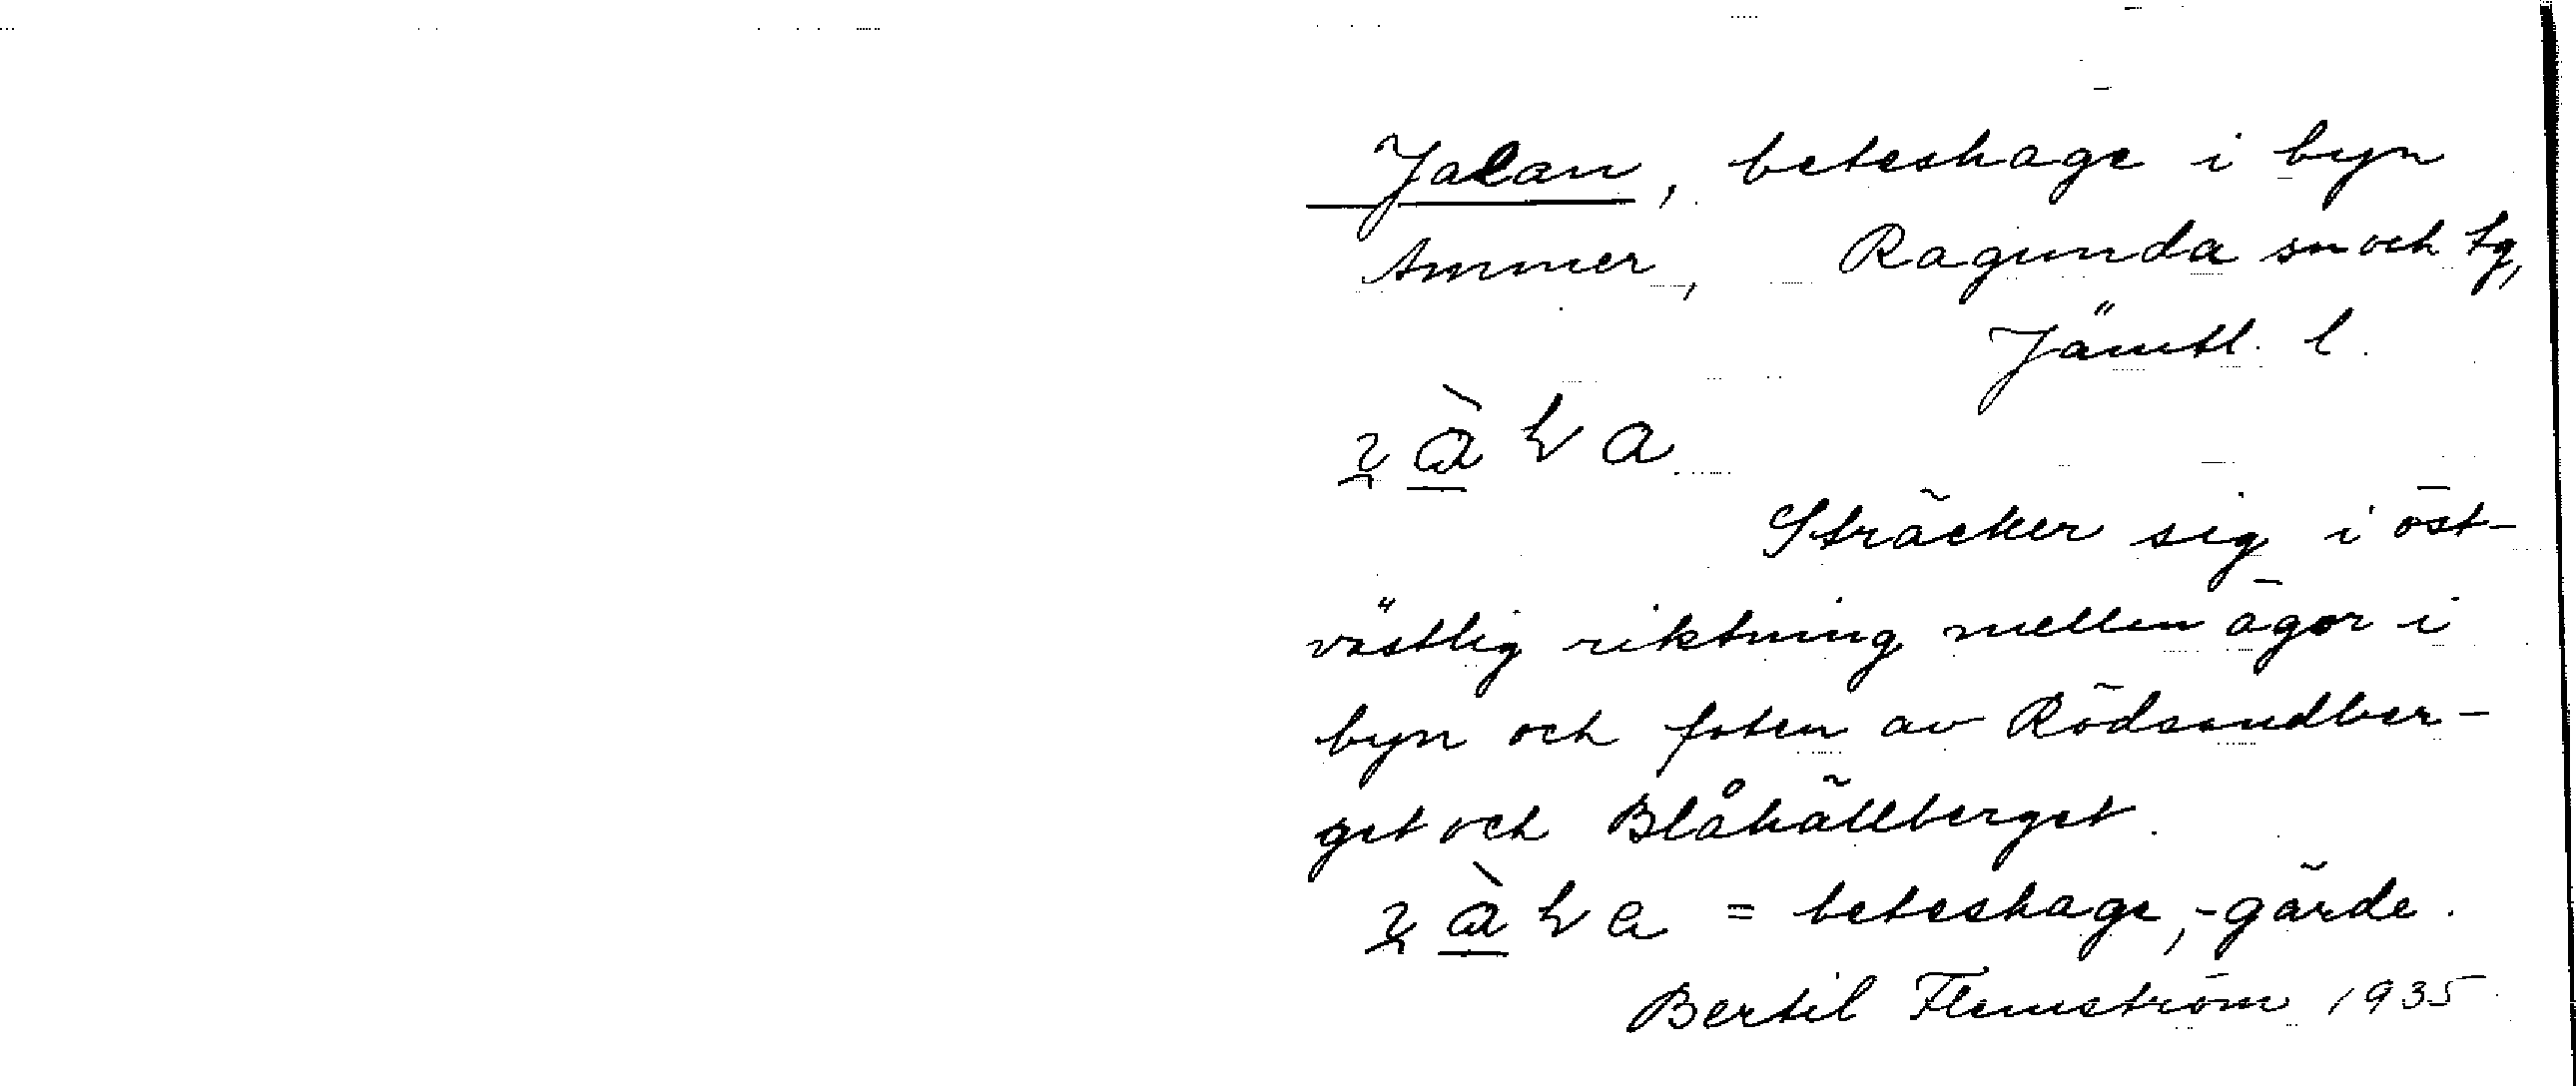 Jalan, beteshage i byn
Ammer, Ragunda sn och tg,
Jämtl. l.
Sträcker sig i öst-
västlig riktning mellan ägor i
byn och foten av Rödsandber-
get och Blåhällberget.
= beteshage, -gärde.
Bertil Flemström 1935